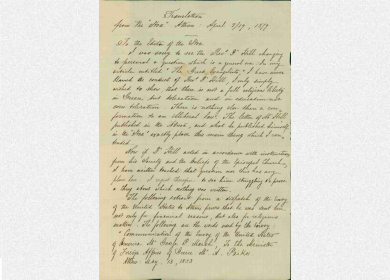 Translation
from the "Nea" Athens: April 7/19, 1877
To the Editor of the Nea.
I was sorry to see the Revd Dr Hill changing
to personal a question which is a general one. In my
article entitled "The I have never
blamed the conduct of Revd Dr Hill, I only simply
wished to show that there is not a full religious liberty
in Greece but toleration and in education not
even toleration. There is nothing else than a con-
firmation to an The letter of Dr Hill
published in the and what he published himself
in the "Nea" exactly prove this same thing which I con-
tended.
Now if Dr Hill acted in accordance with instructions
from his Society and the beliefs of the Episcopal Church,
I have neither doubted that question nor this has any
place here. I regret therefore to see him struggling to prove
a thing about which nothing was written.
The following extract from a dispatch of the Envoy
of the United States to Athens proves that he was sent him
not only for financial reasons, but also for religious
matters. The following are the words used by the Envoy:
"Communication of the Envoy of the United States
of America Mr George P. Marsh, To the Minister
of Foreign Affairs of Greece Mr A. Paikos
Athens Aug. 1853